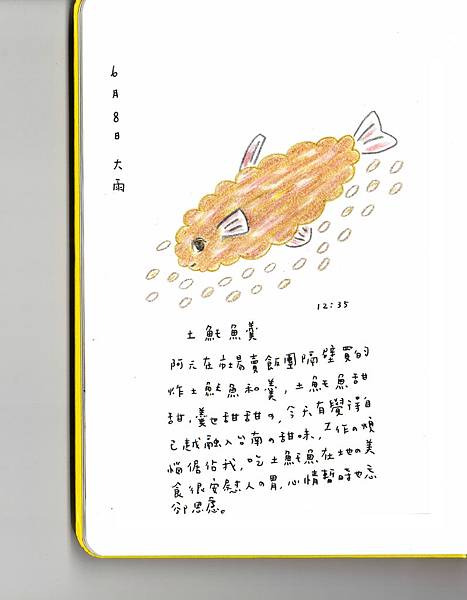 6月8日 大雨
12:35
土魠魚羹
阿元在市場賣飯團隔壁買的
炸土魠魚和羹，土魠魚甜
甜，羹也甜甜的，今天有覺得自
己越融入台南の甜味，工作の煩
惱偏佔我，吃土魠魚在地の美
食很安慰人の胃，心情暫時也忘
卻思慮。